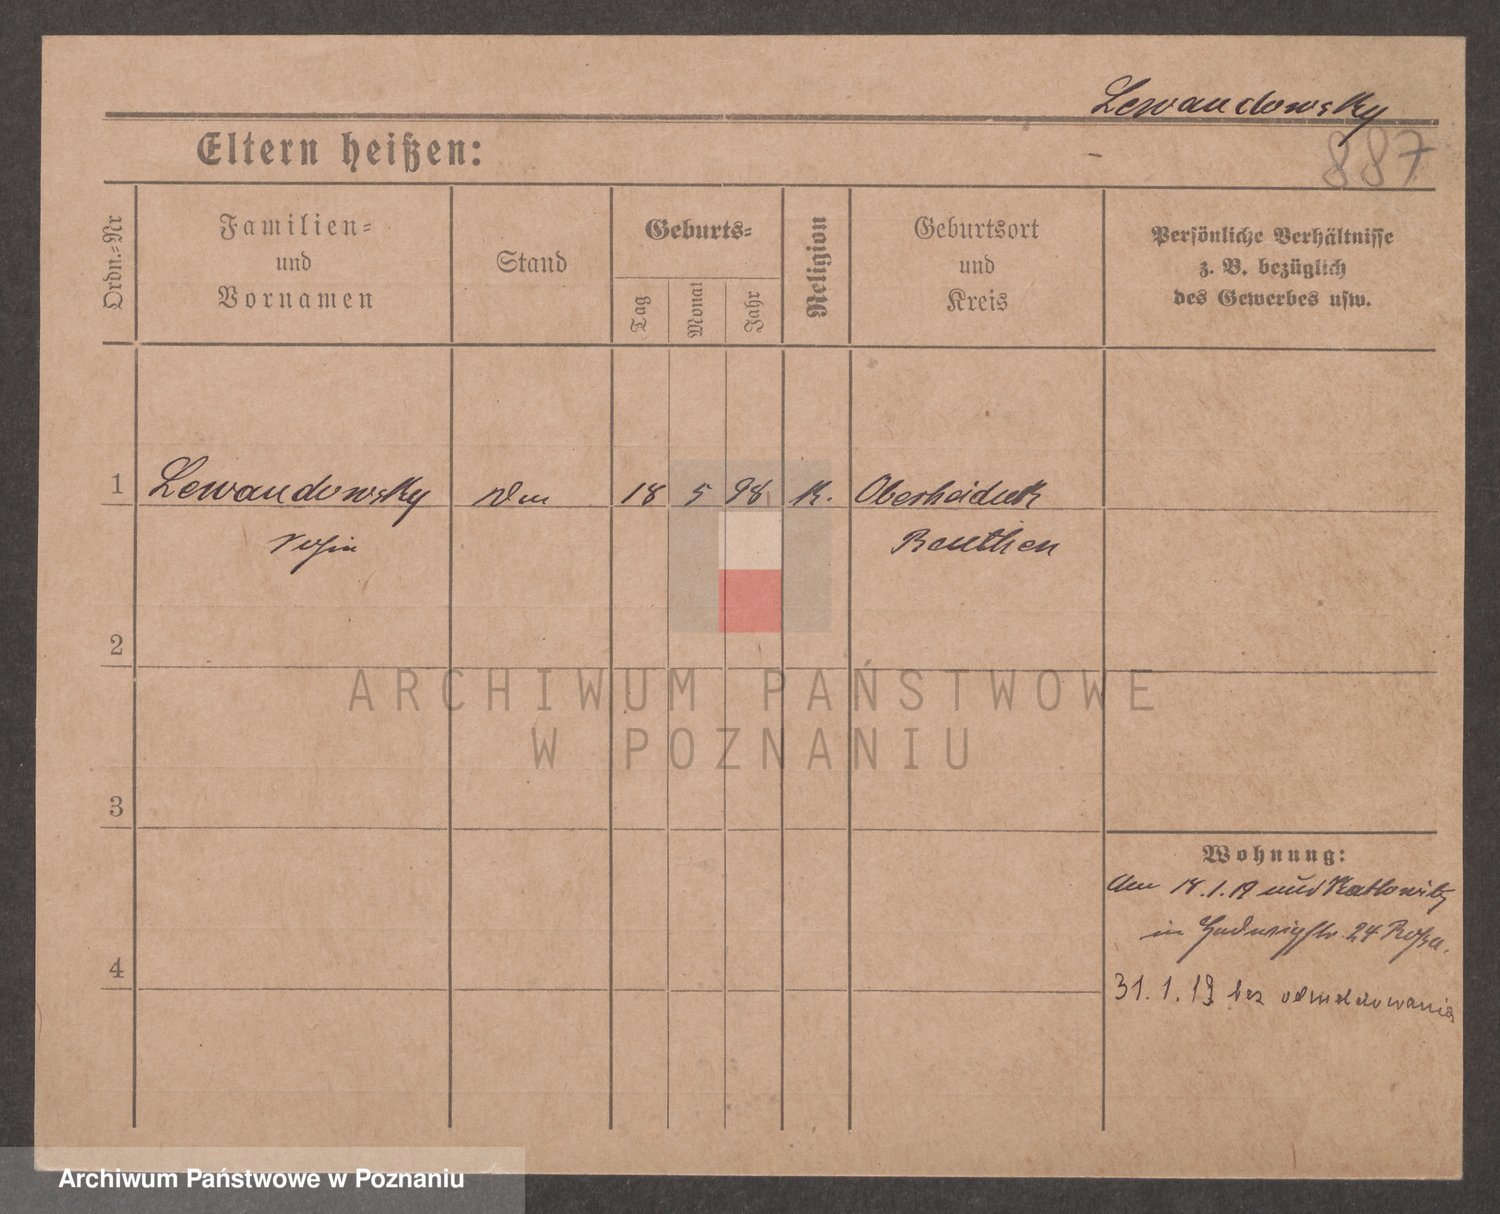 Lewandowsky
887
Eltern heißen:
Ordn.-Nr
Familien-
und
Vornamen
Stand
Geburts-
Tag
Monat
Jahr
Religion
Geburtsort
und
Kreis
Persönliche Verhältnisse
z. B. bezüglich
des Gewerbes usw.
1 Lewandowsky 18 5 98 K. Oberheiduk
Beuthen
2
ARCHIWUM PAŃSTWOWE
W POZNANIU
3
Wohnung:
18.1.19 Kattowitz
in 24
4
31.1.19 bez odmeldowania
Archiwum Państwowe w Poznaniu